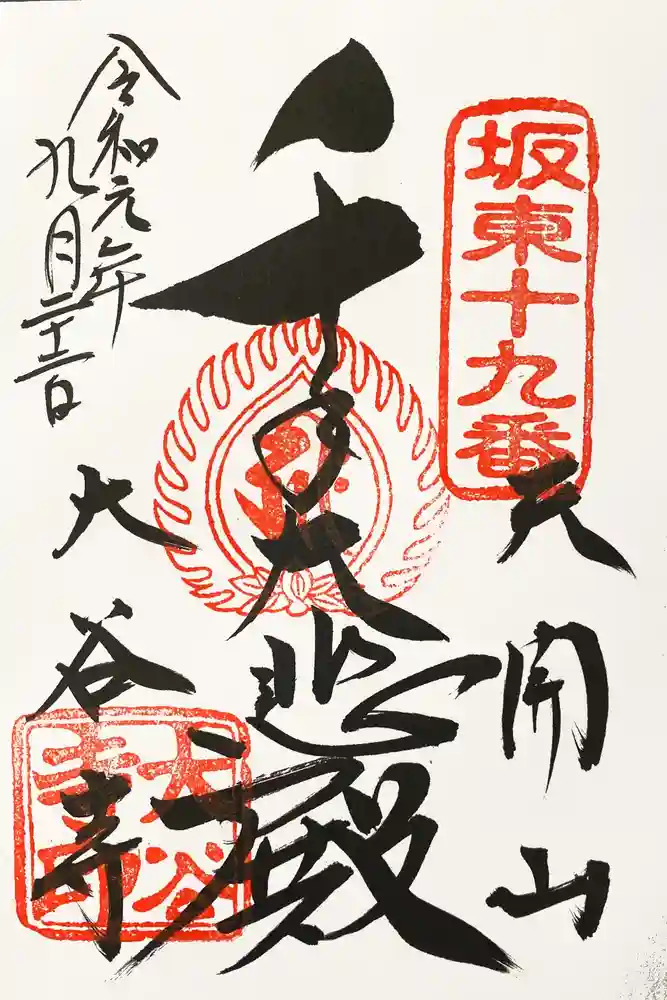 坂東十九番
天開山
千手大悲殿
大谷寺
大谷寺印
令和元年
九月二十二日